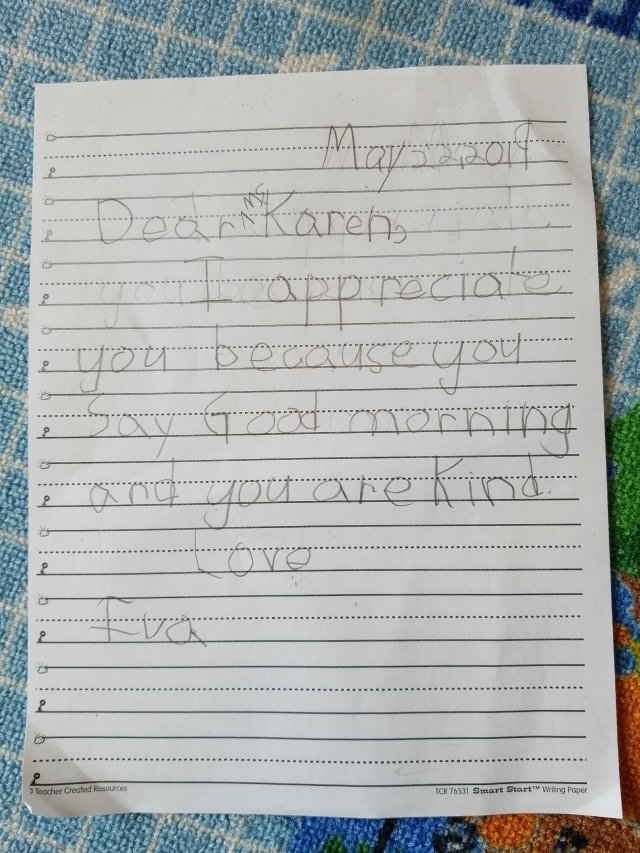 May 22, 2019
Dear Karen,
I appreciate
you because you
Say Good morning
and you are Kind.
Love
Eva
Teacher Created Resources
TCR 76531 Smart Start™ Writing Paper